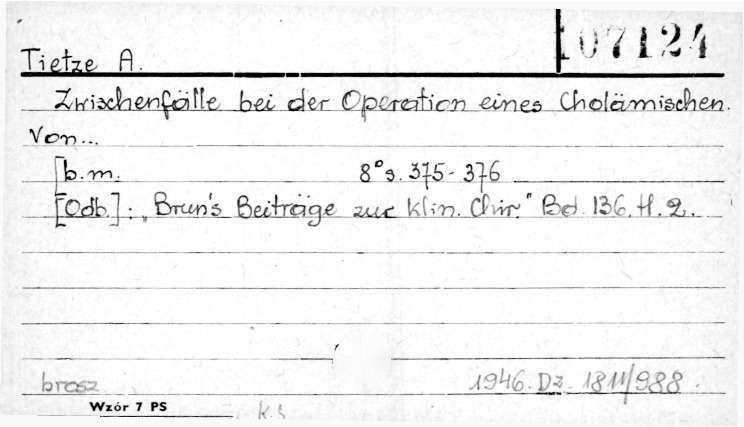 107124
Tietze A.
Zwischenfälle bei der Operation eines Cholämischen.
Von...
[b.m. 8° s. 375-376
[Odb.]: „Brun's Beiträge zur klin. Chir." Bd. 136. H. 2.
brosz. 1946. Dz. 1811/988.
Wzór 7 PS
k.s